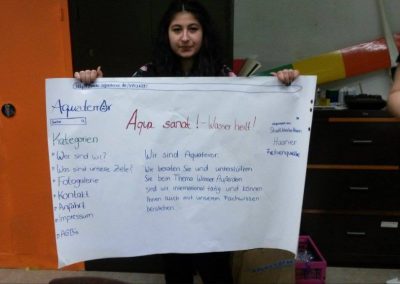 Aquaterror
Suche
Aqua sanat! - Wasser heilt!
Kategorien
Wer sind wir?
Was sind unsere Ziele?
Fotogalerie
Kontakt
Anfahrt
Impressum
AGBs
Wir sind Aquaterror.
Wir beraten Sie und unterstützen
Sie beim Thema Wasser. Außerdem
sind wir international tätig und können
Ihnen auch mit unserem Fachwissen
beistehen.
Haaner
Felsenquelle